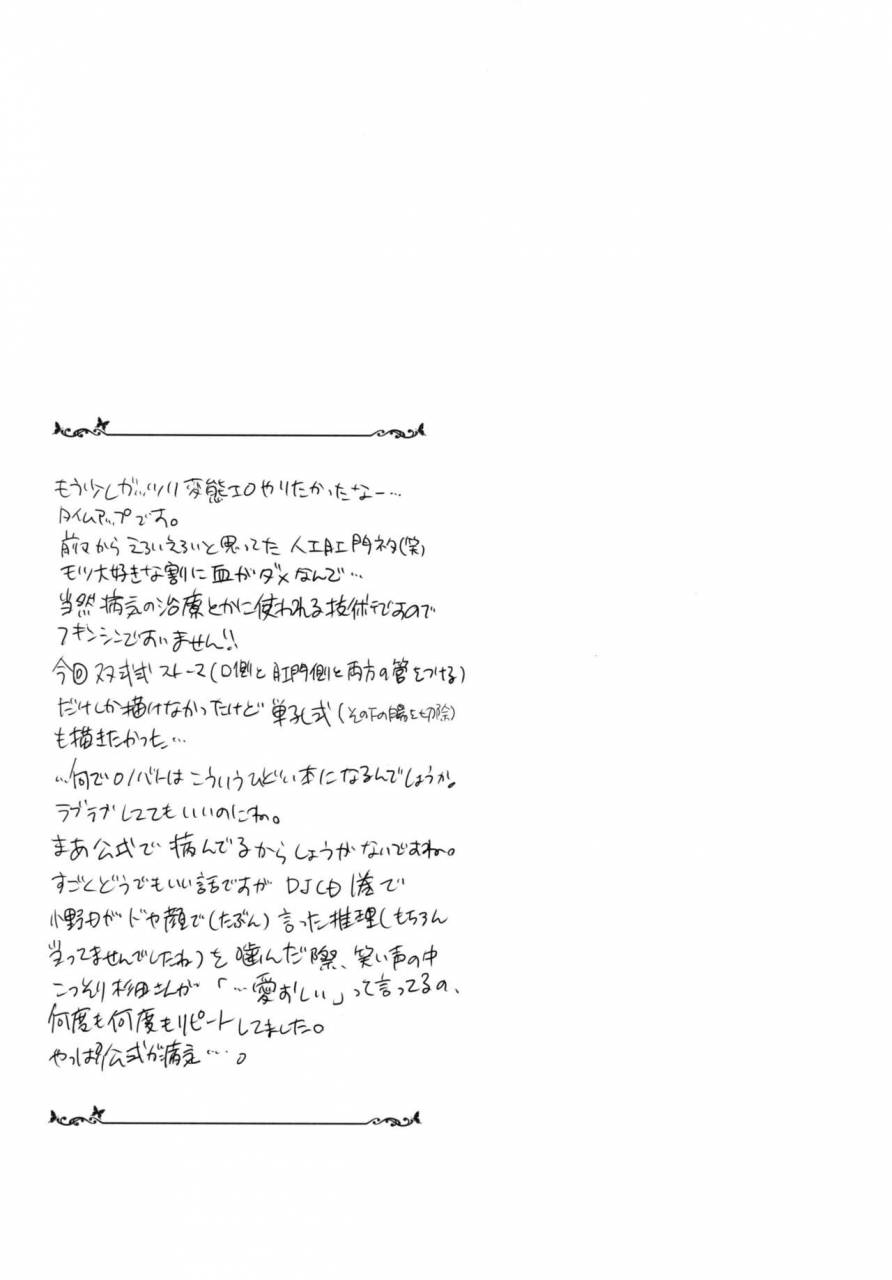 もう少しガッツリ変態エロやりたかったなー…
タイムアップです。
前々からえろいえろいと思ってた 人工肛門ネタ(笑)
モツ大好きな割に血がダメなんで…
当然病気の治療とかに使われる技術ですので
フキンシンですいません!!
今回 双孔式 ストーマ(口側と肛門側と両方の管をつける)
だけしか描けなかったけど 単孔式(その下の腸を切除)
も描きたかった…
…何でロノバトはこういうひどい本になるんでしょうか。
ラブラブしててもいいのにね。
まあ公式で 病んでるからしょうがないですね。
すごくどうでもいい話ですが DJCD 1巻で
小野Dがドヤ顔で(たぶん) 言った推理(もちろん
当ってませんでしたね)を 噛んだ際、笑い声の中
こっそり杉田さんが 「…愛おしい」って言ってるの、
何度も何度もリピートしてました。
やっぱり公式が病気…。